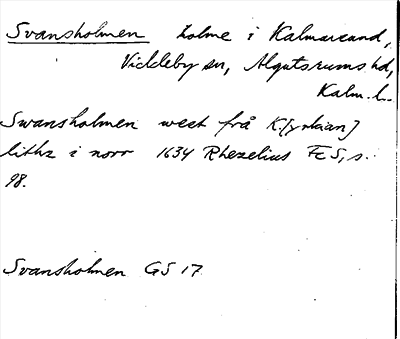 Svansholmen holme i Kalmarsund,
Vickleby sn, Algutsrums hd,
Kalm. l.
Swansholmen west frå K[yrkian]
lithz i norr 1634 Rhezelius F e S, s.
98.
Svansholmen GS 17